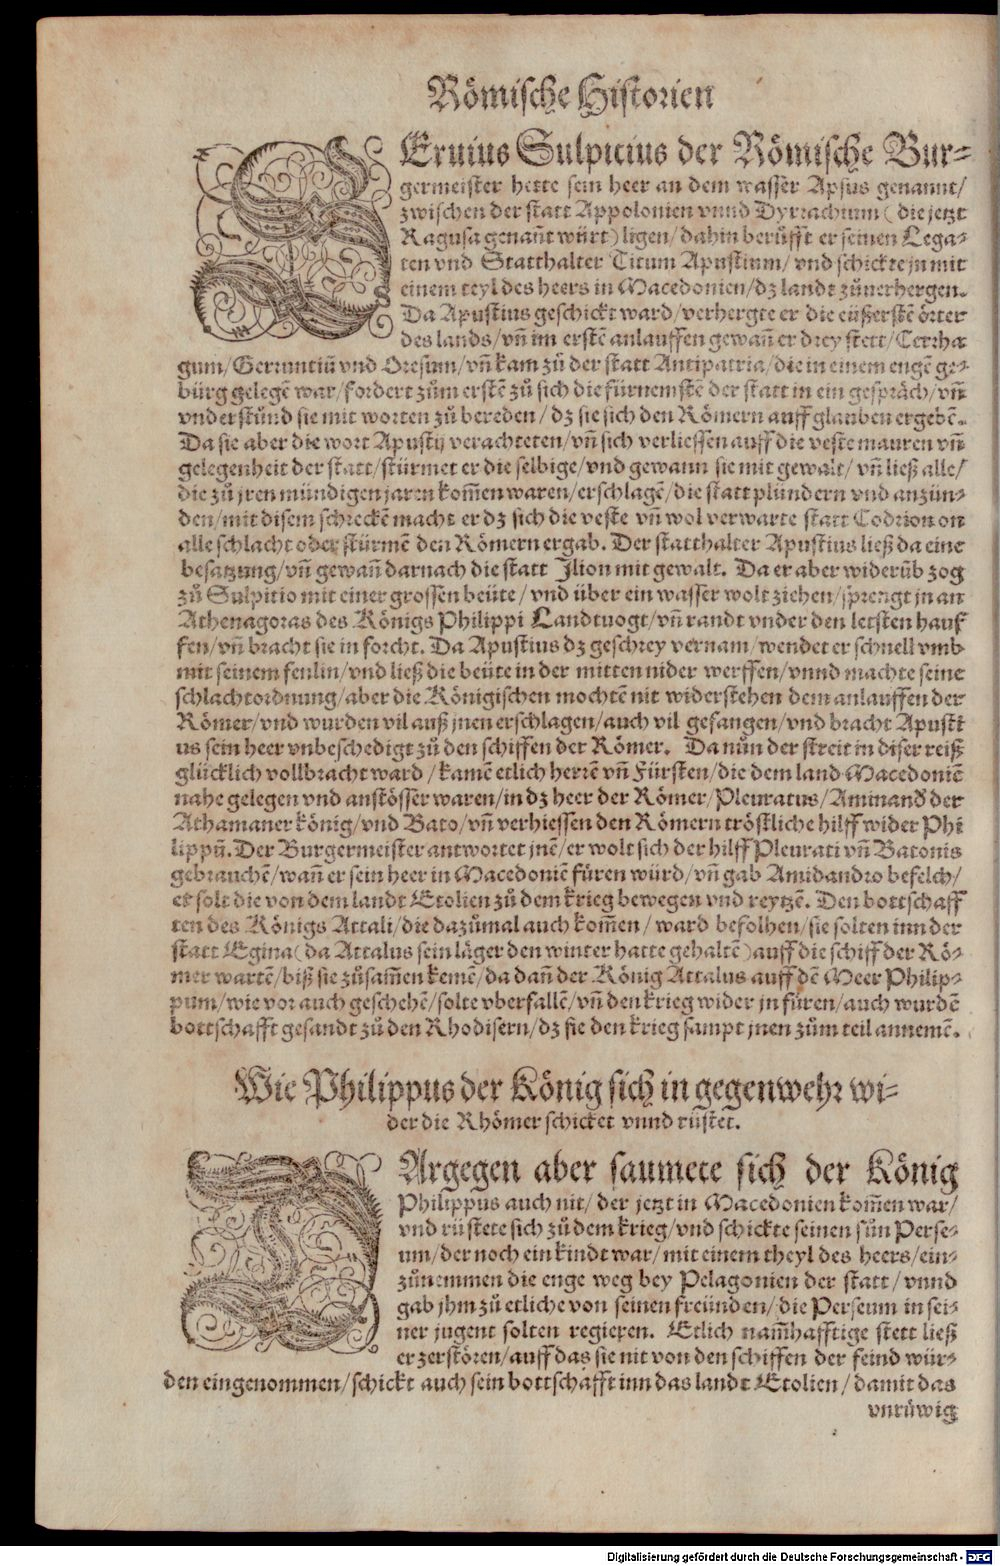 Römische Historien
SEruius Sulpicius der Römische Bur-
germeister hette sein heer an dem wasser Apsus genannt/
zwischen der statt Appolonien vnnd Dyrrachium (die jetzt
Ragusa genañt würt) ligen/dahin berůfft er seinen Lega-
ten vnd Statthalter Titum Apustium/vnd schickte jn mit
einem teyl des heers in Macedonien/dz landt zůuerhergen.
Da Apustius geschickt ward/verhergte er die eüßerstẽ örter
des lands/vñ im erstẽ anlauffen gewañ er drey stett/Cerrha
gum/Gerruntiũ vnd Oresum/vñ kam zů der statt Antipatria/die in einem engẽ ge-
bürg gelegẽ war/fordert zům erstẽ zů sich die fürnemstẽ der statt in ein gespräch/vñ
vnderstůnd sie mit worten zů bereden/dz sie sich den Römern auff glauben ergebẽ.
Da sie aber die wort Apustij verachteten/vñ sich verliessen auff die veste mauren vñ
gelegenheit der statt/stürmet er die selbige/vnd gewann sie mit gewalt/vñ ließ alle/
die zů jren mündigen jaren kom̃en waren/erschlagẽ/die statt plündern vnd anzün-
den/mit disem schreckẽ macht er dz sich die veste vñ wol verwarte statt Codrion on
alle schlacht oder stürmẽ den Römern ergab. Der statthalter Apustius ließ da eine
besatzung/vñ gewañ darnach die statt Ilion mit gewalt. Da er aber widerũb zog
zů Sulpitio mit einer grossen beüte/vnd über ein wasser wolt ziehen/sprengt jn an
Athenagoras des Königs Philippi Landtuogt/vñ randt vnder den letsten hauf
fen/vñ bracht sie in forcht. Da Apustius dz geschrey vernam/wendet er schnell vmb
mit seinem fenlin/vnd ließ die beüte in der mitten nider werffen/vnnd machte seine
schlachtordnung/aber die Königischen mochtẽ nit widerstehen dem anlauffen der
Römer/vnd wurden vil auß jnen erschlagen/auch vil gefangen/vnd bracht Apusti
us sein heer vnbeschedigt zů den schiffen der Römer. Da nůn der streit in diser reiß
glücklich vollbracht ward/kamẽ etlich herrẽ vñ Fürsten/die dem land Macedoniẽ
nahe gelegen vnd anstösser waren/in dz heer der Römer/Pleuratus/Aminand̃ der
Athamaner könig/vnd Bato/vñ verhiessen den Römern tröstliche hilff wider Phi
lippũ. Der Burgermeister antwortet jnẽ/er wolt sich der hilff Pleurati vñ Batonis
gebrauchẽ/wañ er sein heer in Macedoniẽ füren würd/vñ gab Amidandro befelch/
er solt die von dem landt Etolien zů dem krieg bewegen vnd reytzẽ. Den bottschaff
ten des Königs Attali/die dazůmal auch kom̃en/ward befolhen/sie solten inn der
statt Egina (da Attalus sein läger den winter hatte gehaltẽ) auff die schiff der Rö-
mer wartẽ/biß sie zůsam̃en kemẽ/da dañ der König Attalus auff dẽ Meer Philip-
pum/wie vor auch geschehẽ/solte vberfallẽ/vñ den krieg wider jn füren/auch wurdẽ
bottschafft gesandt zů den Rhodisern/dz sie den krieg sampt jnen zům teil annemẽ.
Wie Philippus der König sich in gegenwehr wi-
der die Rhömer schicket vnnd rüstet.
DArgegen aber saumete sich der König
Philippus auch nit/der jetzt in Macedonien kom̃en war/
vnd rüstete sich zů dem krieg/vnd schickte seinen sůn Perse-
um/der noch ein kindt war/mit einem theyl des heers/ein-
zůnemmen die enge weg bey Pelagonien der statt/vnnd
gab jhm zů etliche von seinen freünden/die Perseum in sei-
ner jugent solten regieren. Etlich nam̃hafftige stett ließ
er zerstören/auff das sie nit von den schiffen der feind wür-
den eingenommen/schickt auch sein bottschafft inn das landt Etolien/damit das
vnrüwig
Digitalisierung gefördert durch die Deutsche Forschungsgemeinschaft - DFG